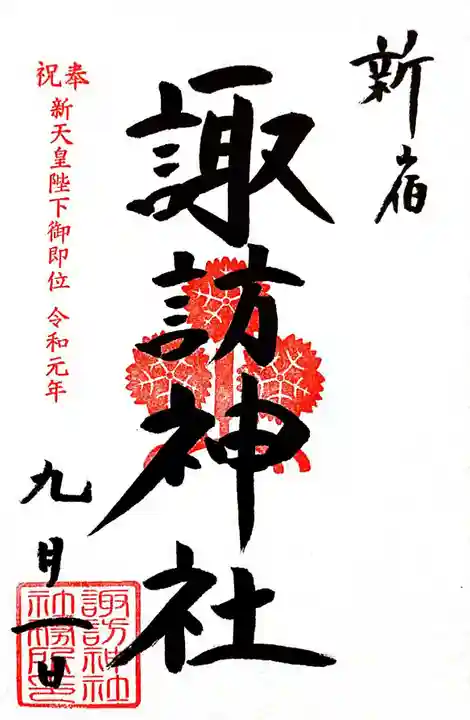 新宿
諏訪神社
奉祝 新天皇陛下御即位 令和元年
九月一日
諏訪神社
社務所之印